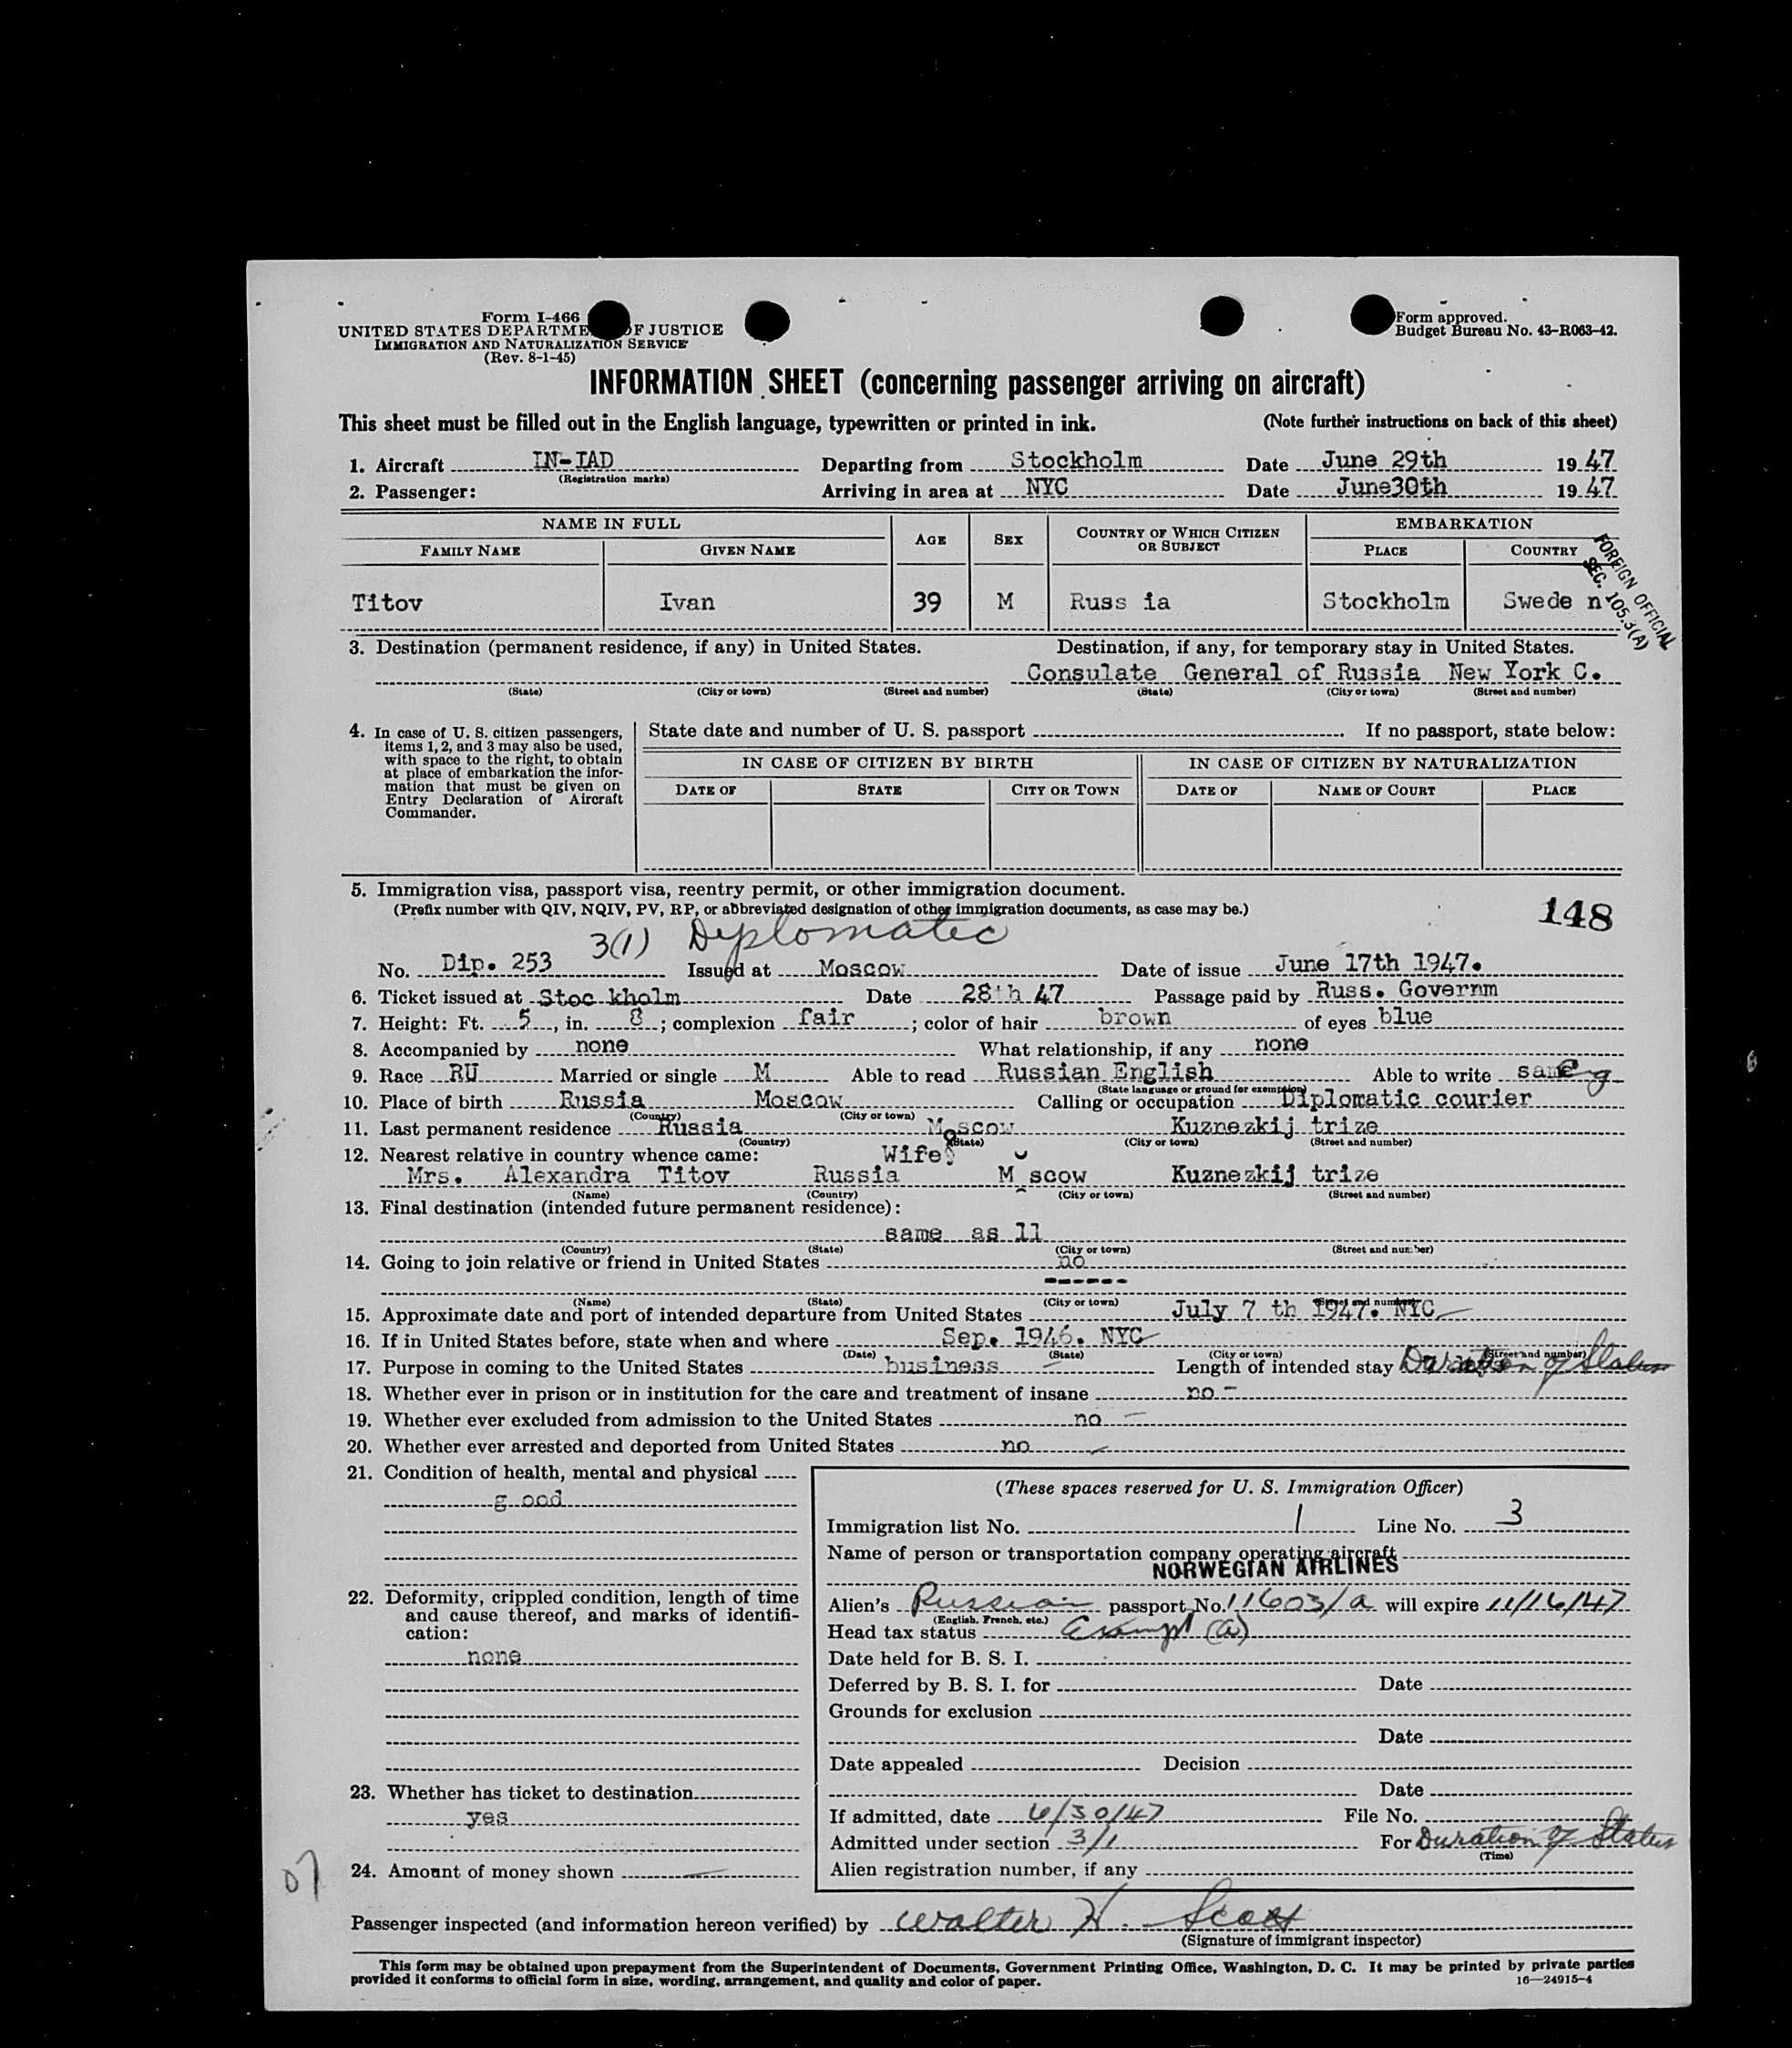 Form I-466
UNITED STATES DEPARTME OF JUSTICE
IMMIGRATION AND NATURALIZATION SERVICE
(Rev. 8-1-45)
Form approved.
Budget Bureau No. 43-R063-42.
INFORMATION SHEET (concerning passenger arriving on aircraft)
This sheet must be filled out in the English language, typewritten or printed in ink. (Note further instructions on back of this sheet)
1. Aircraft IN-IAD Departing from Stockholm Date June 29th 1947
(Registration marks)
2. Passenger: Arriving in area at NYC Date June30th 1947
NAME IN FULL AGE SEX COUNTRY OF WHICH CITIZEN OR SUBJECT EMBARKATION
FAMILY NAME GIVEN NAME PLACE COUNTRY
FOREIGN OFFICIAL
SEC. 105.3(A)
Titov Ivan 39 M Russ ia Stockholm Swede n
3. Destination (permanent residence, if any) in United States. Destination, if any, for temporary stay in United States.
Consulate General of Russia New York C.
(State) (City or town) (Street and number) (State) (City or town) (Street and number)
4. In case of U. S. citizen passengers, items 1, 2, and 3 may also be used, with space to the right, to obtain at place of embarkation the information that must be given on Entry Declaration of Aircraft Commander.
State date and number of U. S. passport If no passport, state below:
IN CASE OF CITIZEN BY BIRTH IN CASE OF CITIZEN BY NATURALIZATION
DATE OF STATE CITY OR TOWN DATE OF NAME OF COURT PLACE
5. Immigration visa, passport visa, reentry permit, or other immigration document.
(Prefix number with QIV, NQIV, PV, RP, or abbreviated designation of other immigration documents, as case may be.)
148
3(1) Diplomatic
No. Dip. 253 Issued at Moscow Date of issue June 17th 1947.
6. Ticket issued at Stoc kholm Date 28th 47 Passage paid by Russ. Governm
7. Height: Ft. 5, in. 8; complexion fair; color of hair brown of eyes blue
8. Accompanied by none What relationship, if any none
9. Race RU Married or single M Able to read Russian English Able to write same
(State language or ground for exemption)
10. Place of birth Russia Moscow Calling or occupation Diplomatic courier
(Country) (City or town)
11. Last permanent residence Russia Moscow Kuznezkij trize
(Country) (State) (City or town) (Street and number)
12. Nearest relative in country whence came: Wife
Mrs. Alexandra Titov Russia M scow Kuznezkij trize
(Name) (Country) (City or town) (Street and number)
13. Final destination (intended future permanent residence):
same as 11
(Country) (State) (City or town) (Street and number)
14. Going to join relative or friend in United States no
------
(Name) (State) (City or town) (Street and number)
15. Approximate date and port of intended departure from United States July 7 th 1947. NYC
16. If in United States before, state when and where Sep. 1946. NYC
(Date) (State) (City or town) (Street and number)
17. Purpose in coming to the United States business Length of intended stay Duration of Status
18. Whether ever in prison or in institution for the care and treatment of insane no
19. Whether ever excluded from admission to the United States no
20. Whether ever arrested and deported from United States no
21. Condition of health, mental and physical
g ood
22. Deformity, crippled condition, length of time and cause thereof, and marks of identification:
none
23. Whether has ticket to destination
yes
24. Amount of money shown
07
(These spaces reserved for U. S. Immigration Officer)
Immigration list No. 1 Line No. 3
Name of person or transportation company operating aircraft
NORWEGIAN AIRLINES
Alien's Russian passport No. 11603/a will expire 11/16/47
(English, French, etc.)
Head tax status Exempt (a)
Date held for B. S. I.
Deferred by B. S. I. for Date
Grounds for exclusion
Date
Date appealed Decision
Date
If admitted, date 6/30/47 File No.
Admitted under section 3/1 For Duration of Status
(Time)
Alien registration number, if any
Passenger inspected (and information hereon verified) by Walter H. Scott
(Signature of immigrant inspector)
This form may be obtained upon prepayment from the Superintendent of Documents, Government Printing Office, Washington, D. C. It may be printed by private parties
provided it conforms to official form in size, wording, arrangement, and quality and color of paper. 16—24915-4